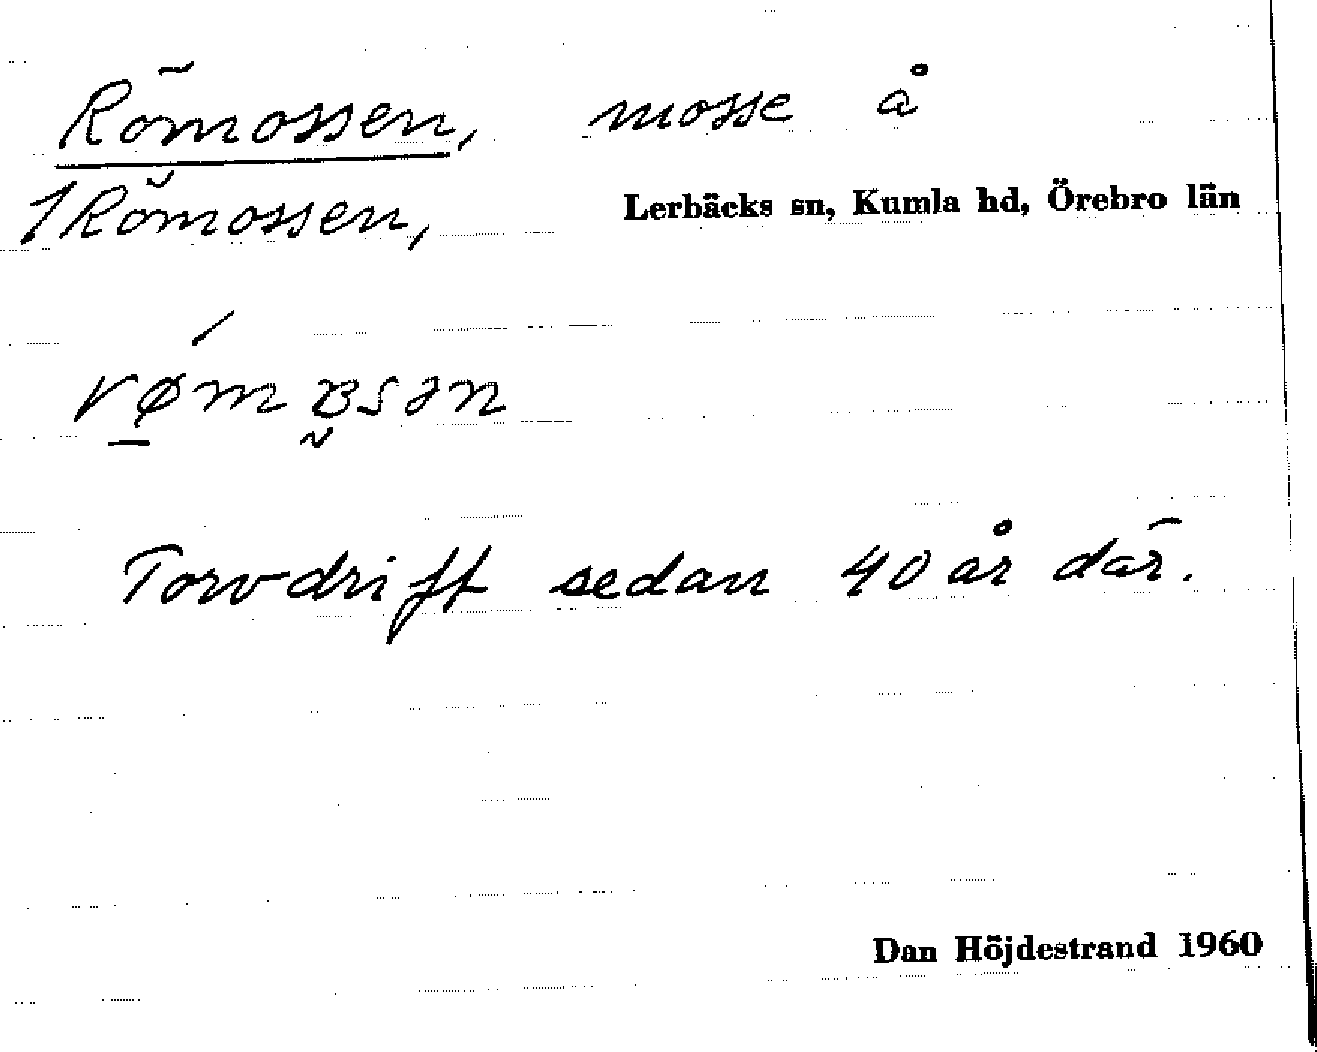 Römossen, mosse å
1 Römossen, Lerbäcks sn, Kumla hd, Örebro län
Torvdrift sedan 40 år där.
Dan Höjdestrand 1960